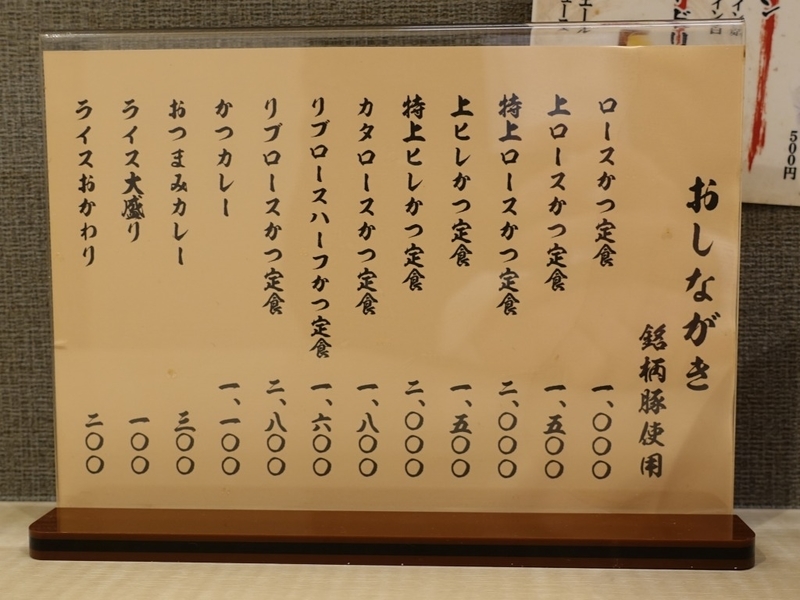 おしながき
銘柄豚使用
ロースかつ定食 一、〇〇〇
上ロースかつ定食 一、五〇〇
特上ロースかつ定食 二、〇〇〇
上ヒレかつ定食 一、五〇〇
特上ヒレかつ定食 二、〇〇〇
カタロースかつ定食 一、八〇〇
リブロースハーフかつ定食 一、六〇〇
リブロースかつ定食 二、八〇〇
かつカレー 一、一〇〇
おつまみカレー 三〇〇
ライス大盛り 一〇〇
ライスおかわり 二〇〇
500円